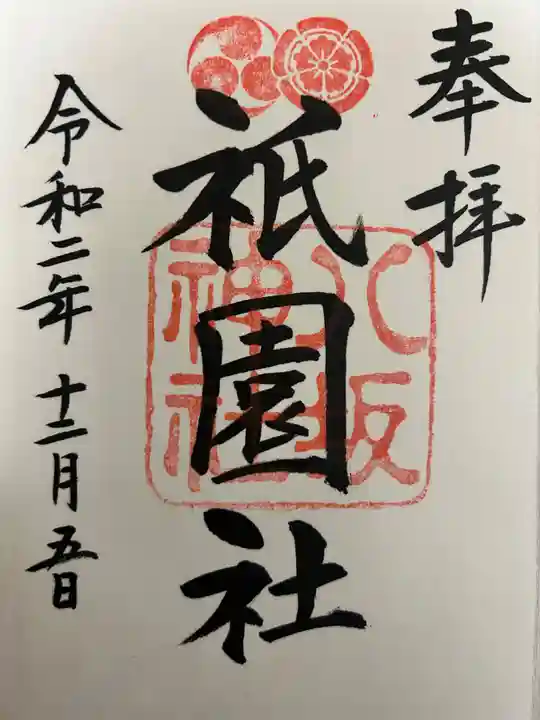 奉拝
祇園社
八坂
神社
令和二年十二月五日